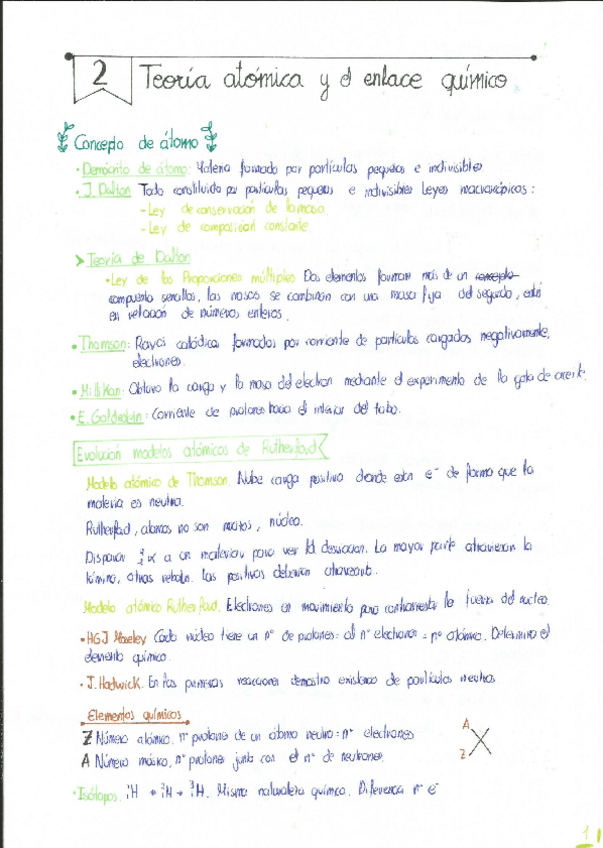 2 Teoría atómica y el enlace químico
Concepto de átomo
• Demócrito de átomo: Materia formada por partículas pequeñas e indivisibles
• J. Dalton Todo constituido por partículas pequeñas e indivisibles Leyes macroscópicas:
- Ley de conservación de la masa
- Ley de composición constante
> Teoría de Dalton
• Ley de las Proporciones múltiples Dos elementos forman más de un
compuesto sencillos, las masas se combinan con una masa fija del segundo, están
en relación de números enteros.
• Thomson: Rayos catódicos formados por corriente de partículas cargadas negativamente,
electrones.
• Millikan: Obtuvo la carga y la masa del electrón mediante el experimento de la gota de aceite.
• E. Goldstein: Corriente de protones hacia el interior del tubo.
Evolución modelos atómicos de Rutherford
Modelo atómico de Thomson. Nube carga positiva donde están e⁻ de forma que la
materia es neutra.
Rutherford, átomos no son macizos, núcleo.
Disparar α a un material para ver la desviación. La mayor parte atraviesan la
lámina, otras rebotan. Las positivas deberían atravesarla.
Modelo atómico Rutherford. Electrones en movimiento para contrarrestar la fuerza del núcleo.
• HGJ Moseley Cada núcleo tiene un nº de protones: al nº electrones = nº atómico. Determina el
elemento químico.
• J. Hadwick. En las primeras reacciones demostró existencia de partículas neutras
Elementos químicos
Z Número atómico. nº protones de un átomo neutro = nº electrones
A Número másico, nº protones junto con el nº de neutrones.
A
Z X
• Isótopos. ¹H + ²H + ³H. Misma naturaleza química. Diferencia nº e⁻
1